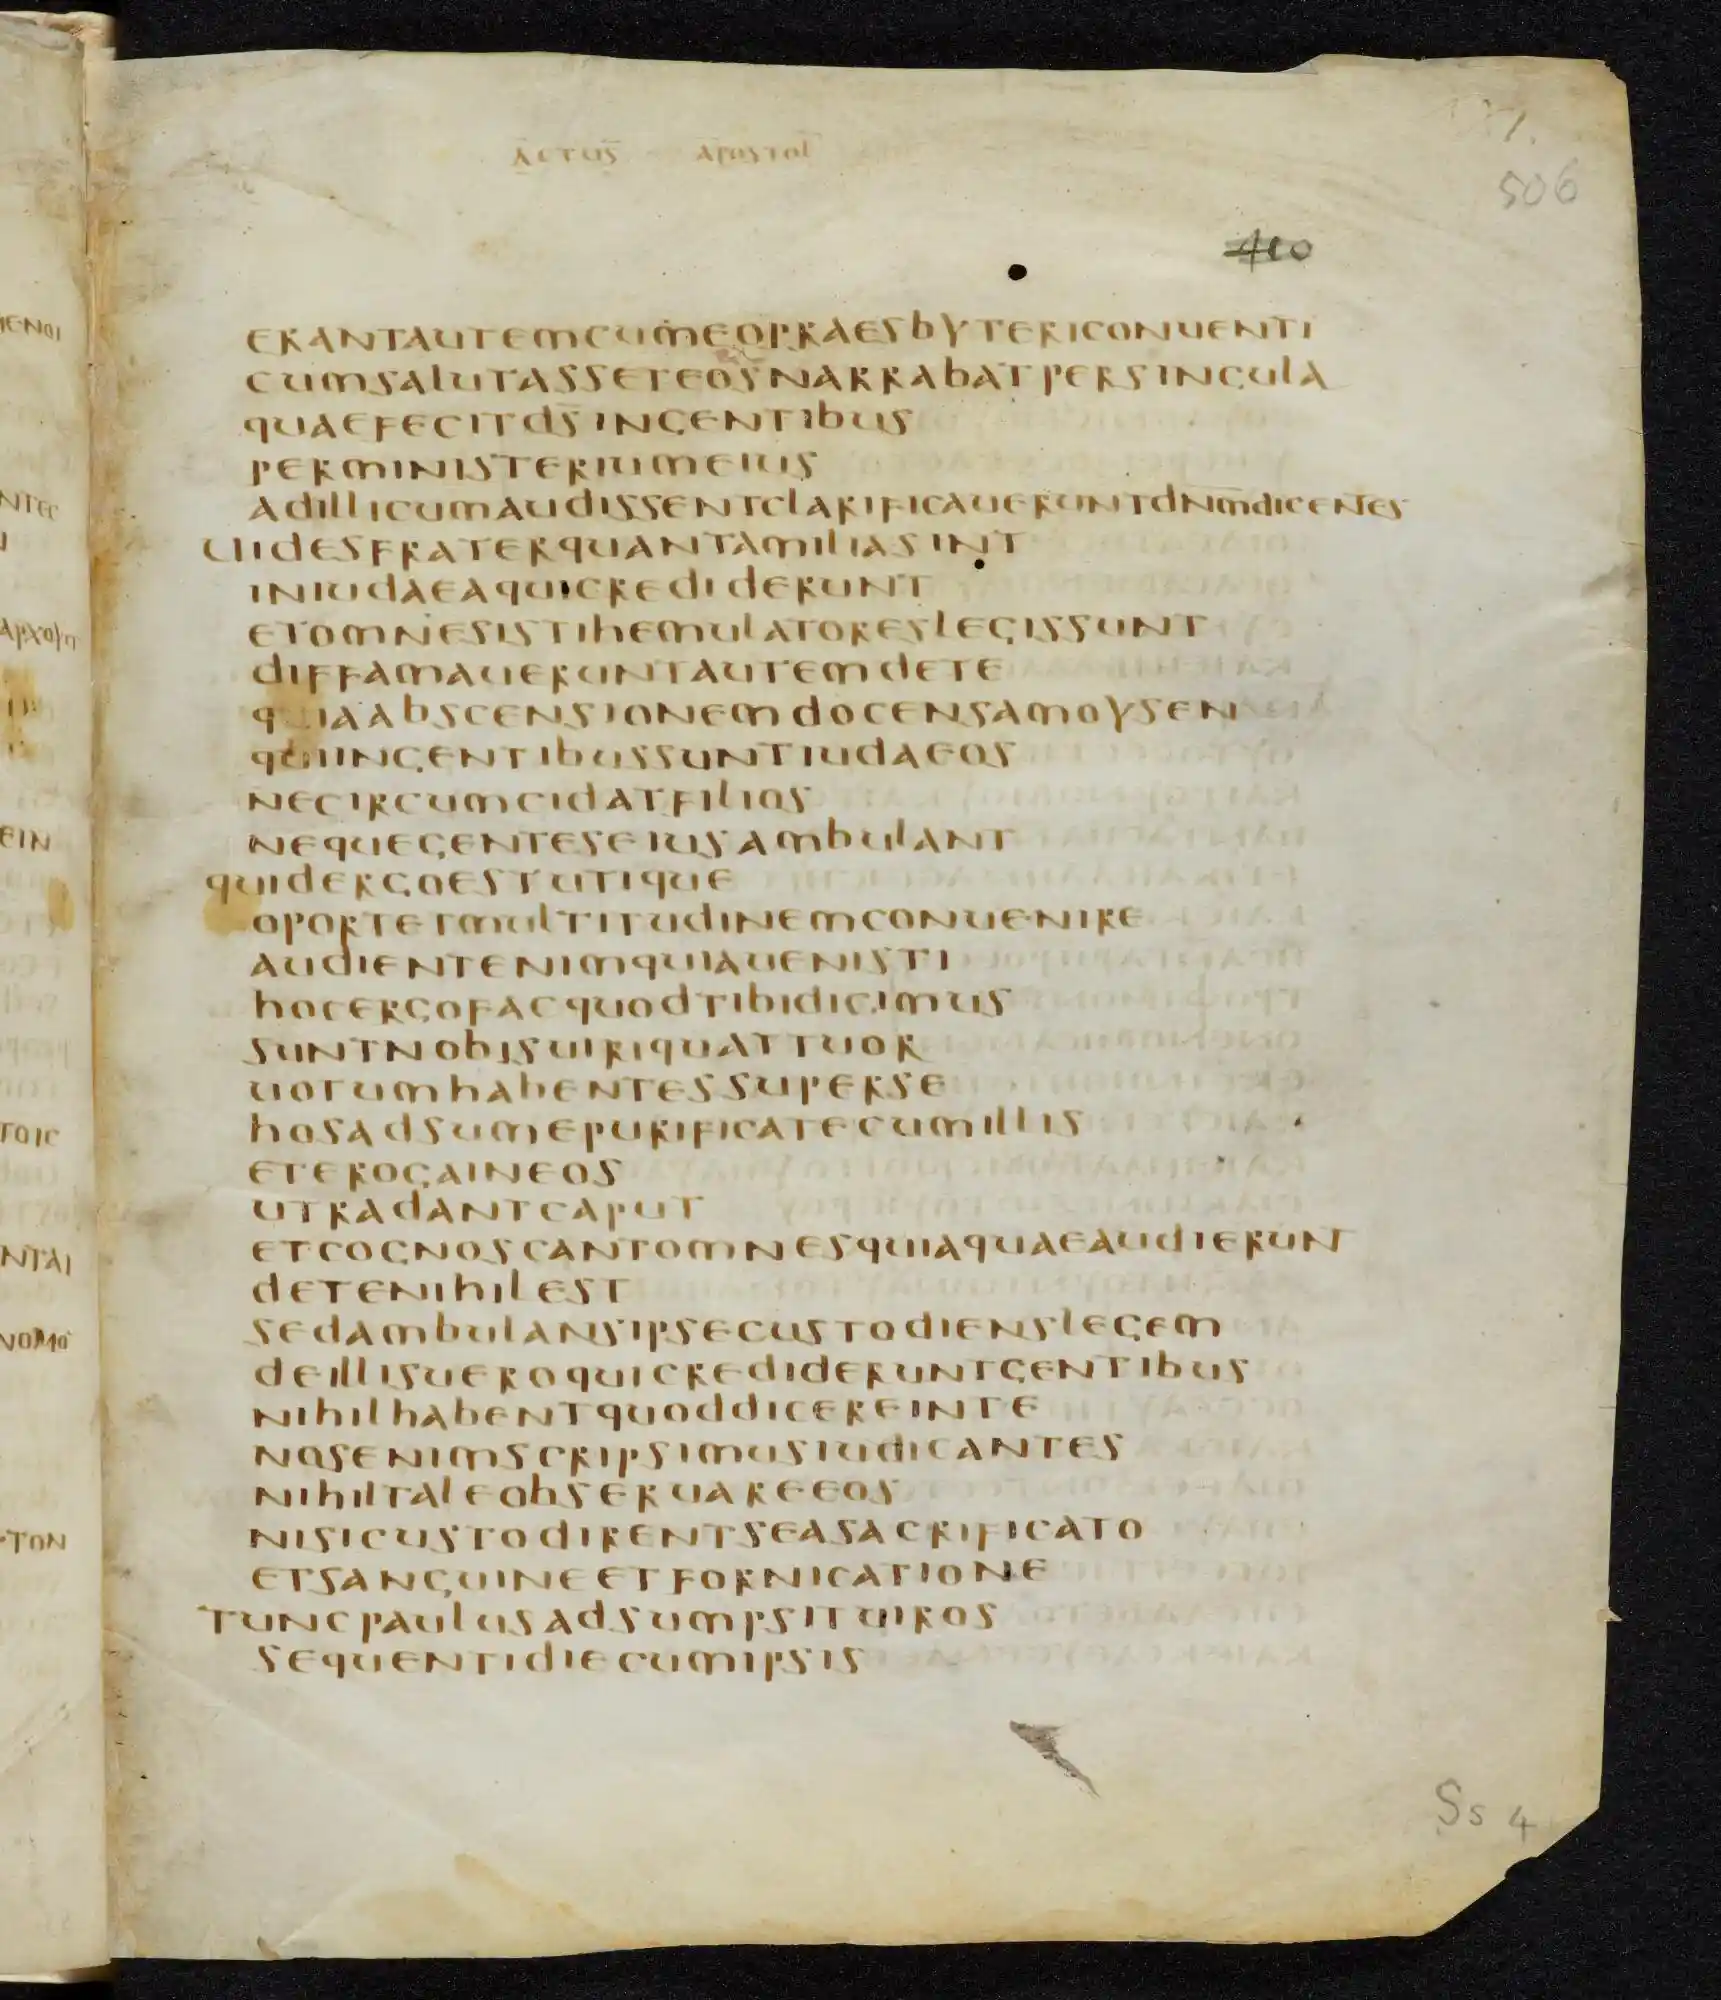 ACTUS APOSTOL
506
410
ERANTAUTEMCUMEOPRAESBYTERICONUENTI
CUMSALUTASSETEOSNARRABATPERSINGULA
QUAEFECITD̅S̅INGENTIBUS
PERMINISTERIUMEIUS
ADILLICUMAUDISSENTCLARIFICAUERUNTD̅N̅M̅DICENTES
UIDESFRATERQUANTAMILIASINT
INIUDAEAQUICREDIDERUNT
ETOMNESISTIHEMULATORESLEGISSUNT
DIFFAMAUERUNTAUTEMDETE
QUIAABSCENSIONEMDOCENSAMOYSEN
QUIINGENTIBUSSUNTIUDAEOS
NECIRCUMCIDATFILIOS
NEQUEGENTESEIUSAMBULANT
QUIDERGOESTUTIQUE
OPORTETMULTITUDINEMCONUENIRE
AUDIENTENIMQUIAUENISTI
HOCERGOFACQUODTIBIDICIMUS
SUNTNOBISUIRIQUATTUOR
UOTUMHABENTESSUPERSE
HOSADSUMEPURIFICATECUMILLIS
ETEROGAINEOS
UTRADANTCAPUT
ETCOGNOSCANTOMNESQUIAQUAEAUDIERUNT
DETENIHILEST
SEDAMBULANSIPSECUSTODIENSLEGEM
DEILLISUEROQUICREDIDERUNTGENTIBUS
NIHILHABENTQUODDICEREINTE
NOSENIMSCRIPSIMUSIUDICANTES
NIHILTALEOBSERUAREEOS
NISICUSTODIRENTSEASACRIFICATO
ETSANGUINEETFORNICATIONE
TUNCPAULUSADSUMPSITUIROS
SEQUENTIDIECUMIPSIS
Ss 4